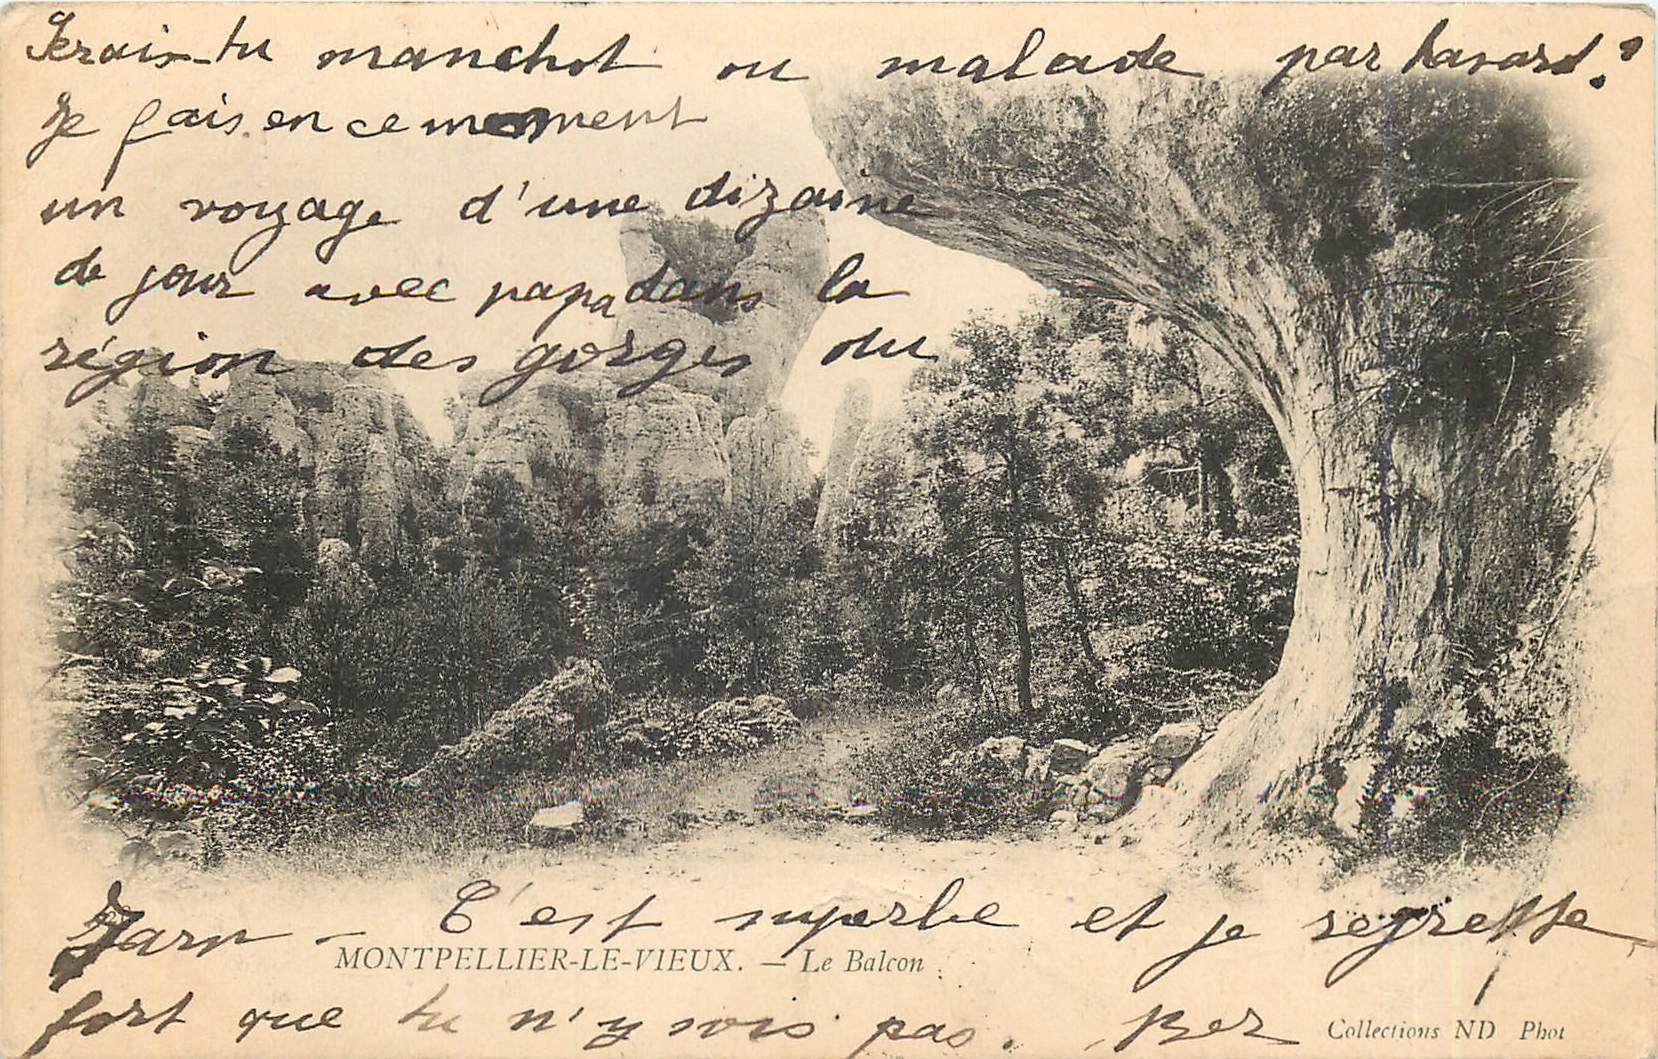 Serais-tu manchot ou malade par hasard ?
Je fais en ce moment
un voyage d'une dizaine
de jour avec papa dans la
région des gorges du
Tarn - C'est superbe et je regrette
MONTPELLIER-LE-VIEUX. — Le Balcon
fort que tu n'y sois pas.
Collections ND Phot